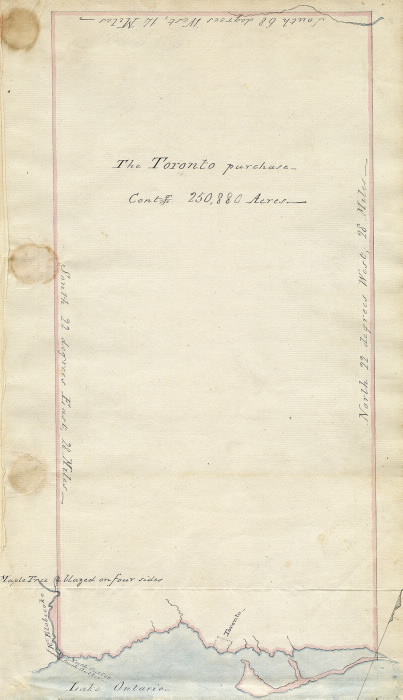 South 68 degrees West, 14 Miles
The Toronto purchase
Contg 250,880 Acres
North 22 degrees West, 28 Miles
South 22 degrees East, 28 Miles
Maple Tree blazed on four sides
Toronto
Lake Ontario